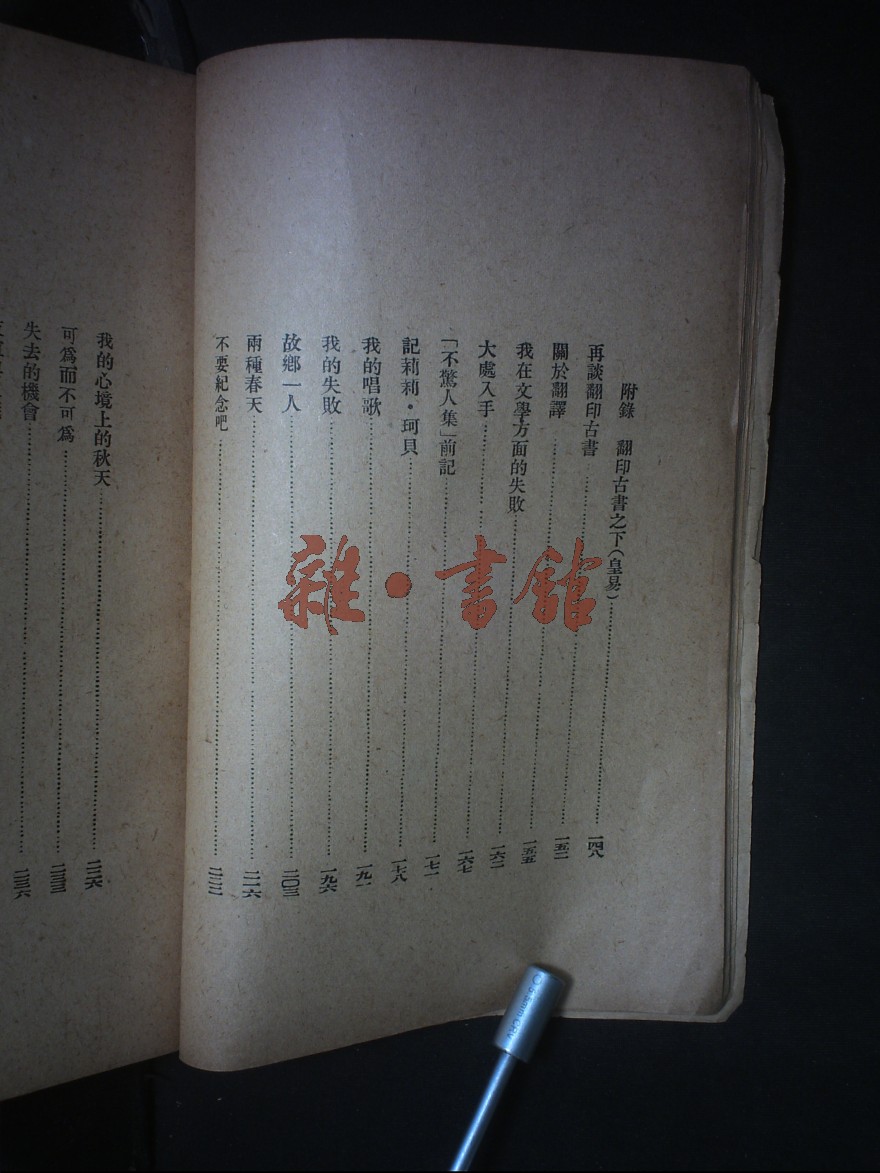 附錄　翻印古書之下（皇易）……一四八
再談翻印古書……一五二
關於翻譯……一五五
我在文學方面的失敗……一六二
大處入手……一六七
「不驚人集」前記……一七一
記莉莉・珂貝……一七八
我的唱歌……一九一
我的失敗……一九六
故鄉一人……二〇三
兩種春天……二一六
不要紀念吧……二二二
我的心境上的秋天……二二六
可爲而不可爲……二三三
失去的機會……二三六
雜・書館
5.5mm CRV